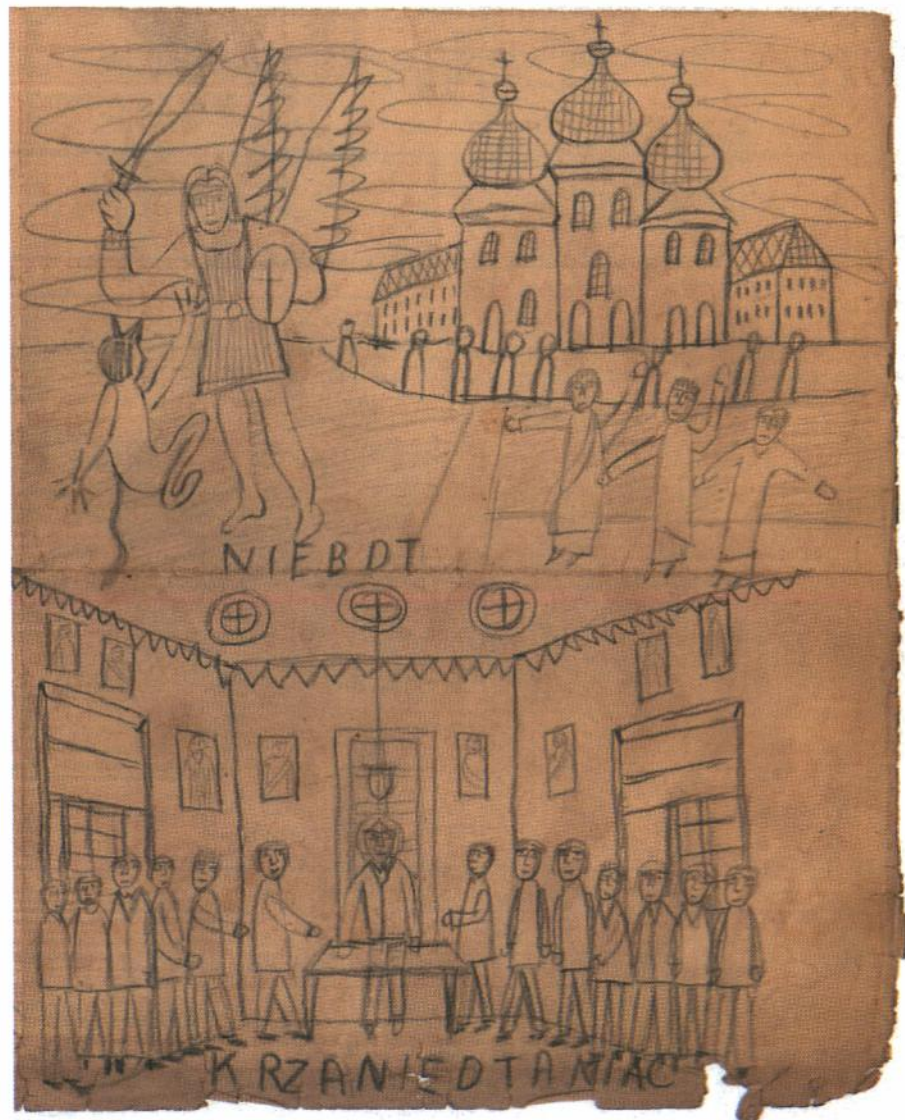 NIEBDT
KRZANIEDTANIAC